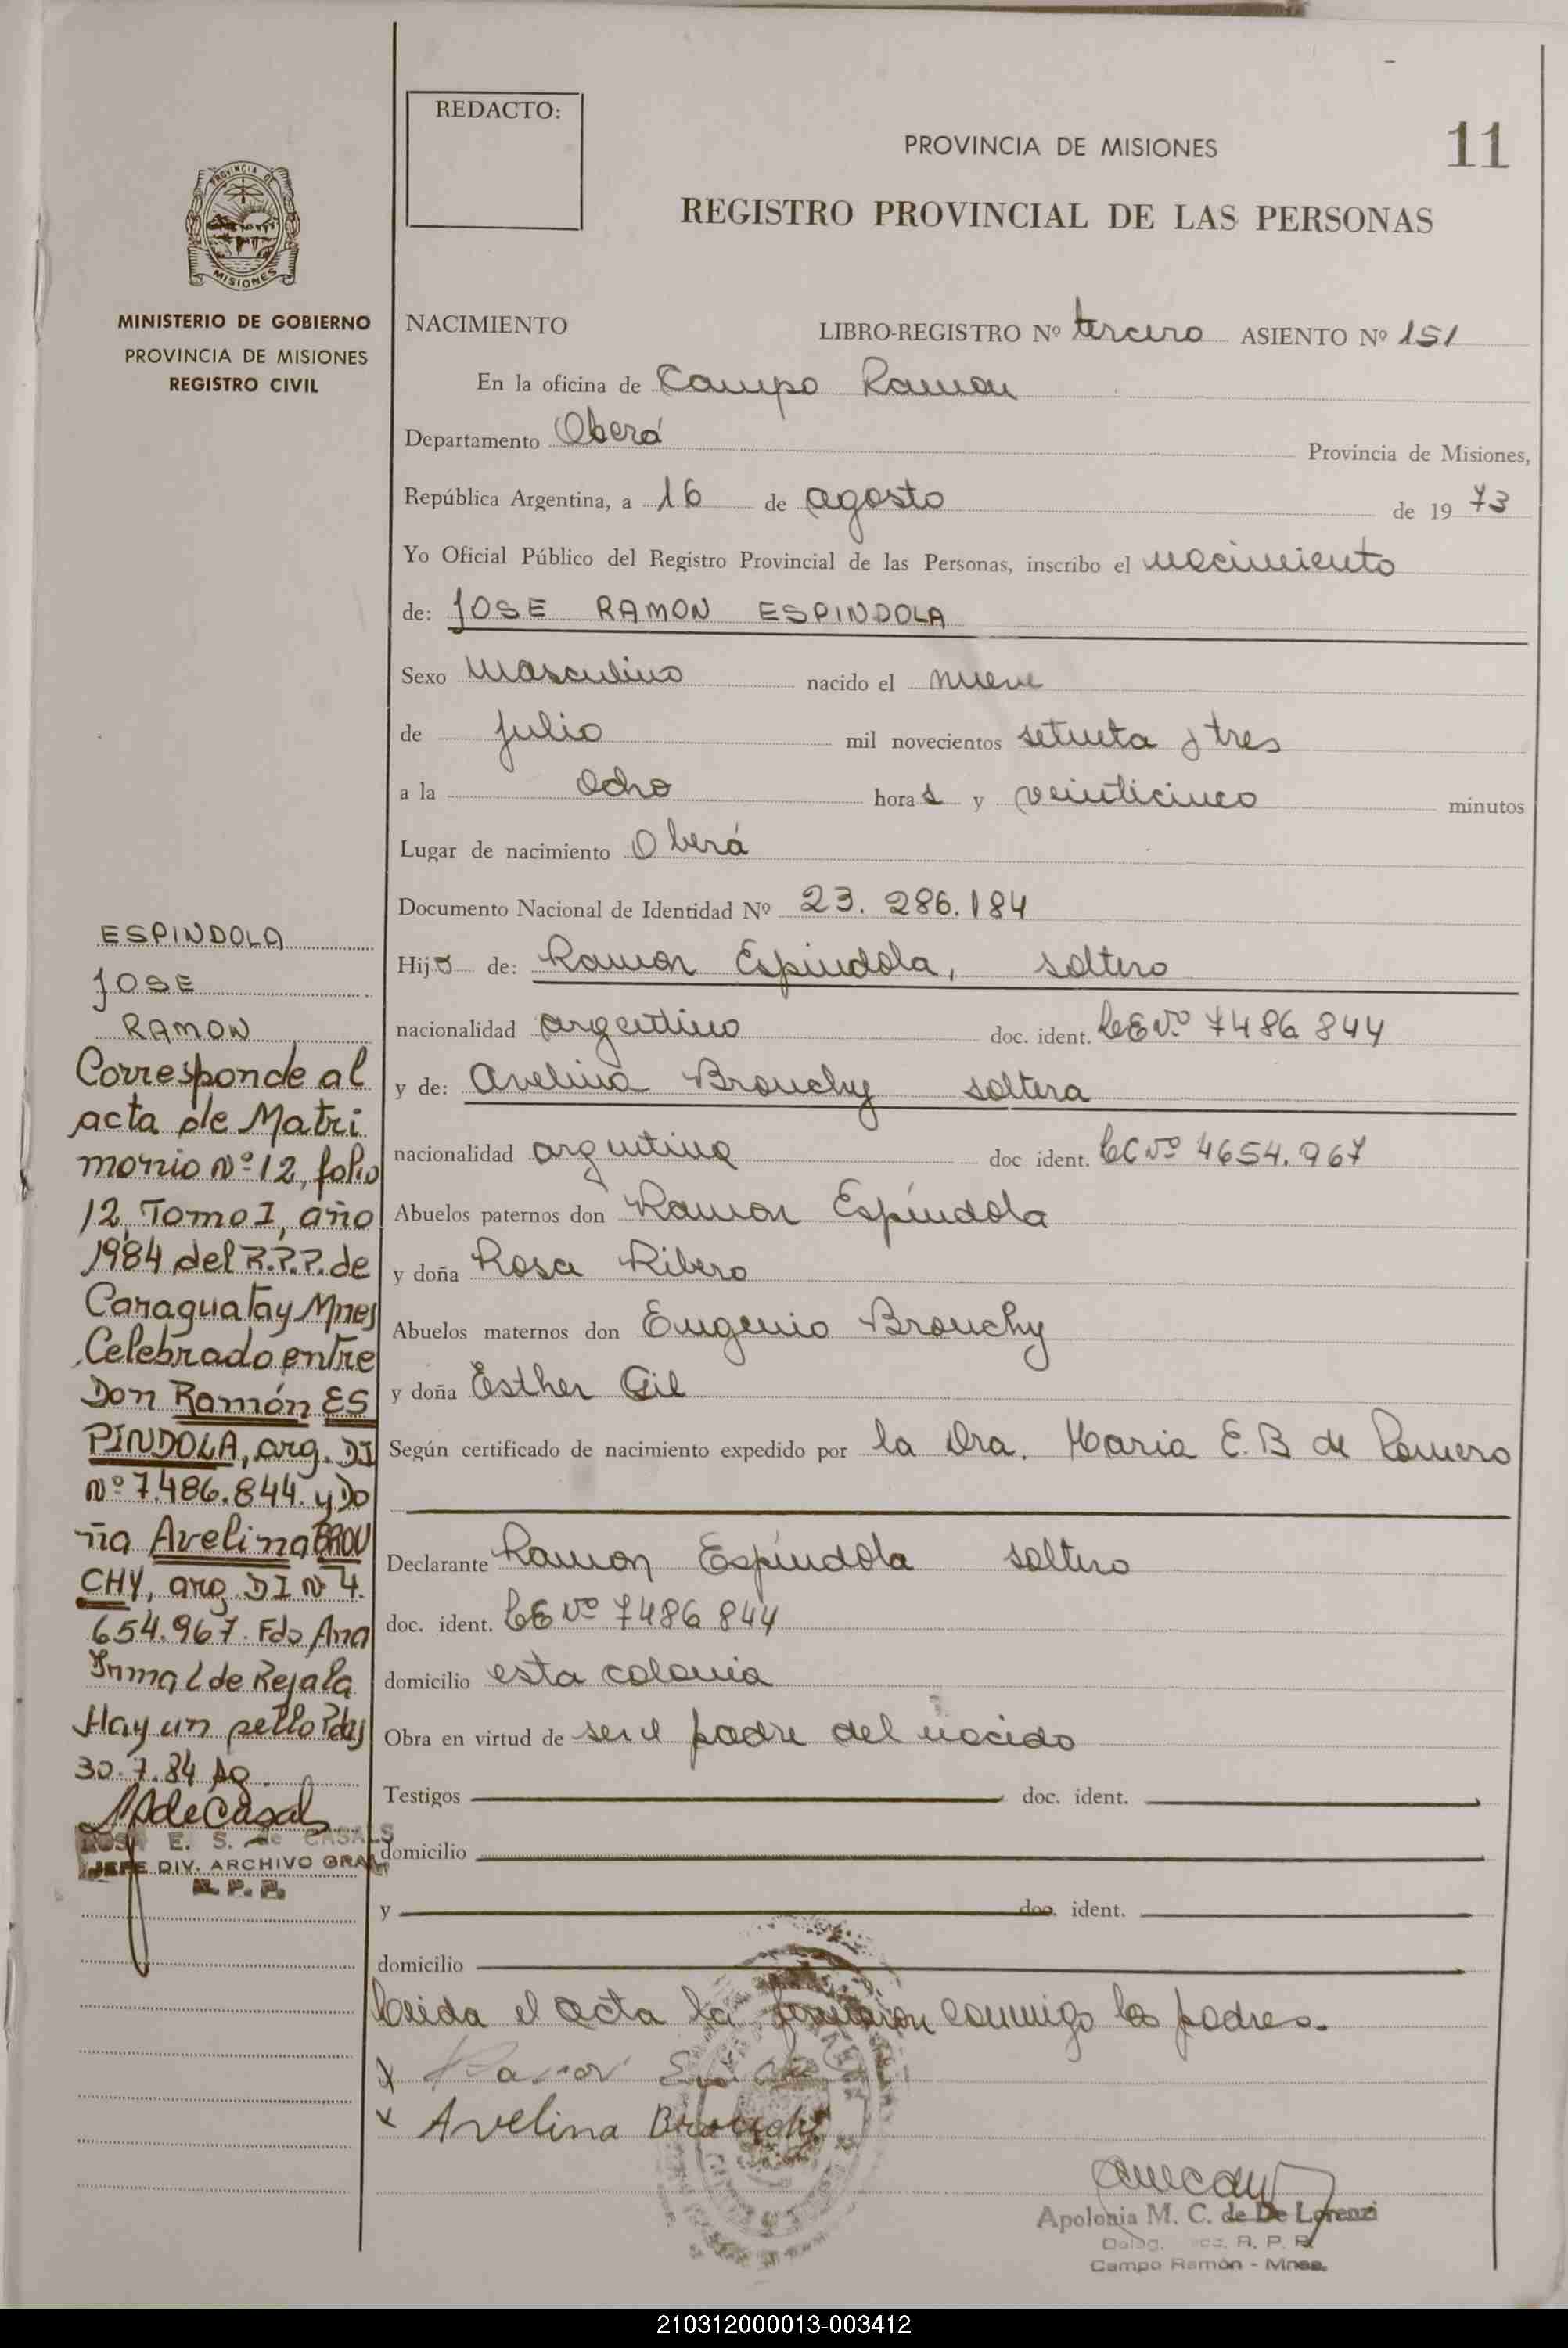 REDACTO:
PROVINCIA DE MISIONES
11
REGISTRO PROVINCIAL DE LAS PERSONAS
PROVINCIA DE
MISIONES
MINISTERIO DE GOBIERNO
PROVINCIA DE MISIONES
REGISTRO CIVIL
NACIMIENTO LIBRO-REGISTRO Nº tercero ASIENTO Nº 151
En la oficina de Campo Ramon
Departamento Oberá Provincia de Misiones,
República Argentina, a 16 de agosto de 1973
Yo Oficial Público del Registro Provincial de las Personas, inscribo el nacimiento
de: JOSE RAMON ESPINDOLA
Sexo Masculino nacido el nueve
de julio mil novecientos setenta y tres
a la ocho horas y veinticinco minutos
Lugar de nacimiento Oberá
Documento Nacional de Identidad Nº 23.286.184
Hijo de: Ramon Espindola, soltero
nacionalidad argentino doc. ident. LE Nº 7486844
y de: Avelina Brouchy soltera
nacionalidad argentina doc ident. LC Nº 4654.967
Abuelos paternos don Ramon Espíndola
y doña Rosa Ribero
Abuelos maternos don Eugenio Brouchy
y doña Esther Gil
Según certificado de nacimiento expedido por la Dra. Maria E.B de Romero
Declarante Ramon Espíndola soltero
doc. ident. LE Nº 7486844
domicilio esta colonia
Obra en virtud de ser el padre del nacido
Testigos doc. ident.
domicilio
y doc. ident.
domicilio
Leida el acta la firmaron conmigo los padres.
x Ramon
x Avelina Brouchy
Apolonia M. C. de De Lorenzi
Deleg. R. P. P.
Campo Ramón - Mnes.
ESPINDOLA
JOSE
RAMON
Corresponde al
acta de Matri
monio Nº 12, folio
12, Tomo I, año
1984 del R.P.P. de
Caraguatay Mnes
Celebrado entre
Don Ramón ES
PINDOLA, arg. DI
Nº 7.486.844. y Do
ña Avelina BROU
CHY, arg. DI Nº 4.
654.967. Fdo Ana
Irma L de Rejala
Hay un sello Pdas
30.7.84 Ag.
ROSA E. S. de CASALS
JEFE DIV. ARCHIVO GRAL
R. P. P.
210312000013-003412